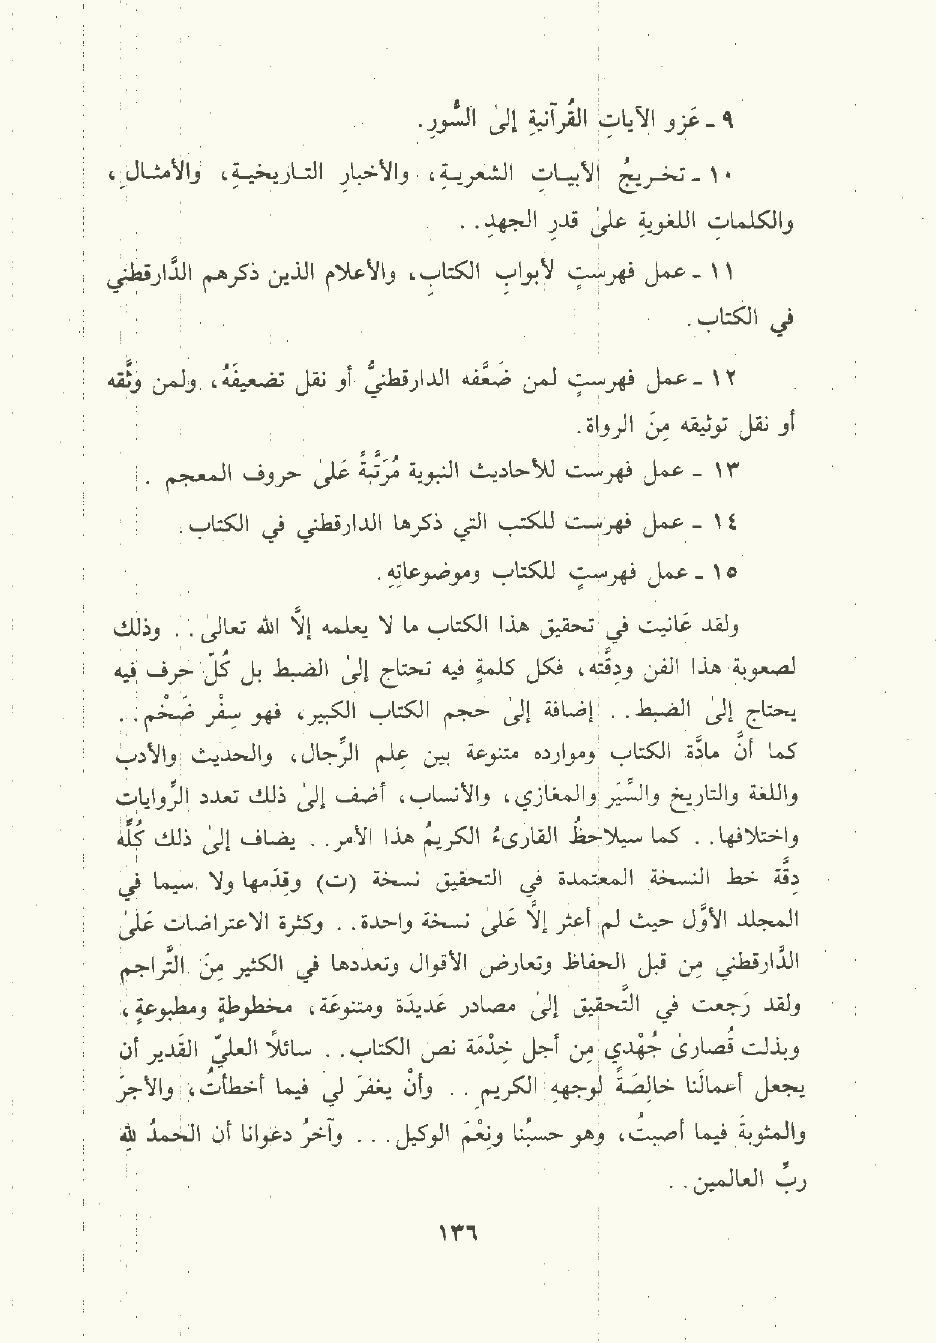 ٩ - عَزو الآياتِ القُرآنيةِ إلىٰ السُّورِ.
١٠ - تخـريجُ الأبيـاتِ الشعريـةِ، والأخبارِ التـاريخيـةِ، والأمثـالِ،
والكلماتِ اللغويةِ علىٰ قدرِ الجهدِ. .
١١ - عمل فهرستٍ لأبوابِ الكتابِ، والأعلام الذين ذكرهم الدَّارقطني
في الكتاب.
١٢ - عمل فهرستٍ لمن ضَعَّفه الدارقطنيُّ أو نقل تضعيفَهُ، ولمن وثَّقه
أو نقل توثيقه مِنَ الرواة.
١٣ - عمل فهرست للأحاديث النبوية مُرَتَّبةً عَلىٰ حروف المعجم .
١٤ - عمل فهرست للكتب التي ذكرها الدارقطني في الكتاب.
١٥ - عمل فهرستٍ للكتاب وموضوعاتِهِ.
ولقد عَانيت في تحقيق هذا الكتاب ما لا يعلمه إلاَّ الله تعالىٰ. . وذلك
لصعوبة هذا الفن ودِقَّتِه، فكل كلمةٍ فيه تحتاج إلىٰ الضبط بل كُلّ حرف فيه
يحتاج إلىٰ الضبط. . إضافة إلىٰ حجم الكتاب الكبير، فهو سِفْر ضَخْم. .
كما أنَّ مادَّة الكتاب وموارده متنوعة بين علم الرِّجال، والحديث والأدب
واللغة والتاريخ والسِّيَر والمغازي، والأنساب، أضف إلىٰ ذلك تعدد الرِّوايات
واختلافها. . كما سيلاحظُ القارىءُ الكريمُ هذا الأمر. . يضاف إلىٰ ذلك كُلِّه
دِقَّة خط النسخة المعتمدة في التحقيق نسخة (ت) وقِدَمها ولا سيما في
المجلد الأوَّل حيث لم أعثر إلاَّ عَلىٰ نسخة واحدة. . وكثرة الاعتراضات عَلىٰ
الدَّارقطني مِن قبل الحفاظ وتعارض الأقوال وتعددها في الكثير مِنَ التَّراجم
ولقد رَجعت في التَّحقيق إلىٰ مصادر عَديدَة ومتنوعَة، مخطوطةٍ ومطبوعةٍ،
وبذلت قُصارىٰ جُهْدي مِن أجل خِدْمَة نص الكتاب. . سائلاً العليّ القَدير أن
يجعل أعمالَنا خالِصَةً لوجهِهِ الكريمِ . . وأنْ يغفرَ لي فيما أخطأتُ، والأجرَ
والمثوبةَ فيما أصبتُ، وهو حسبُنا ونِعْمَ الوكيل. . . وآخرُ دعوانا أن الحمدُ للهِ
ربِّ العالمين. .
١٣٦